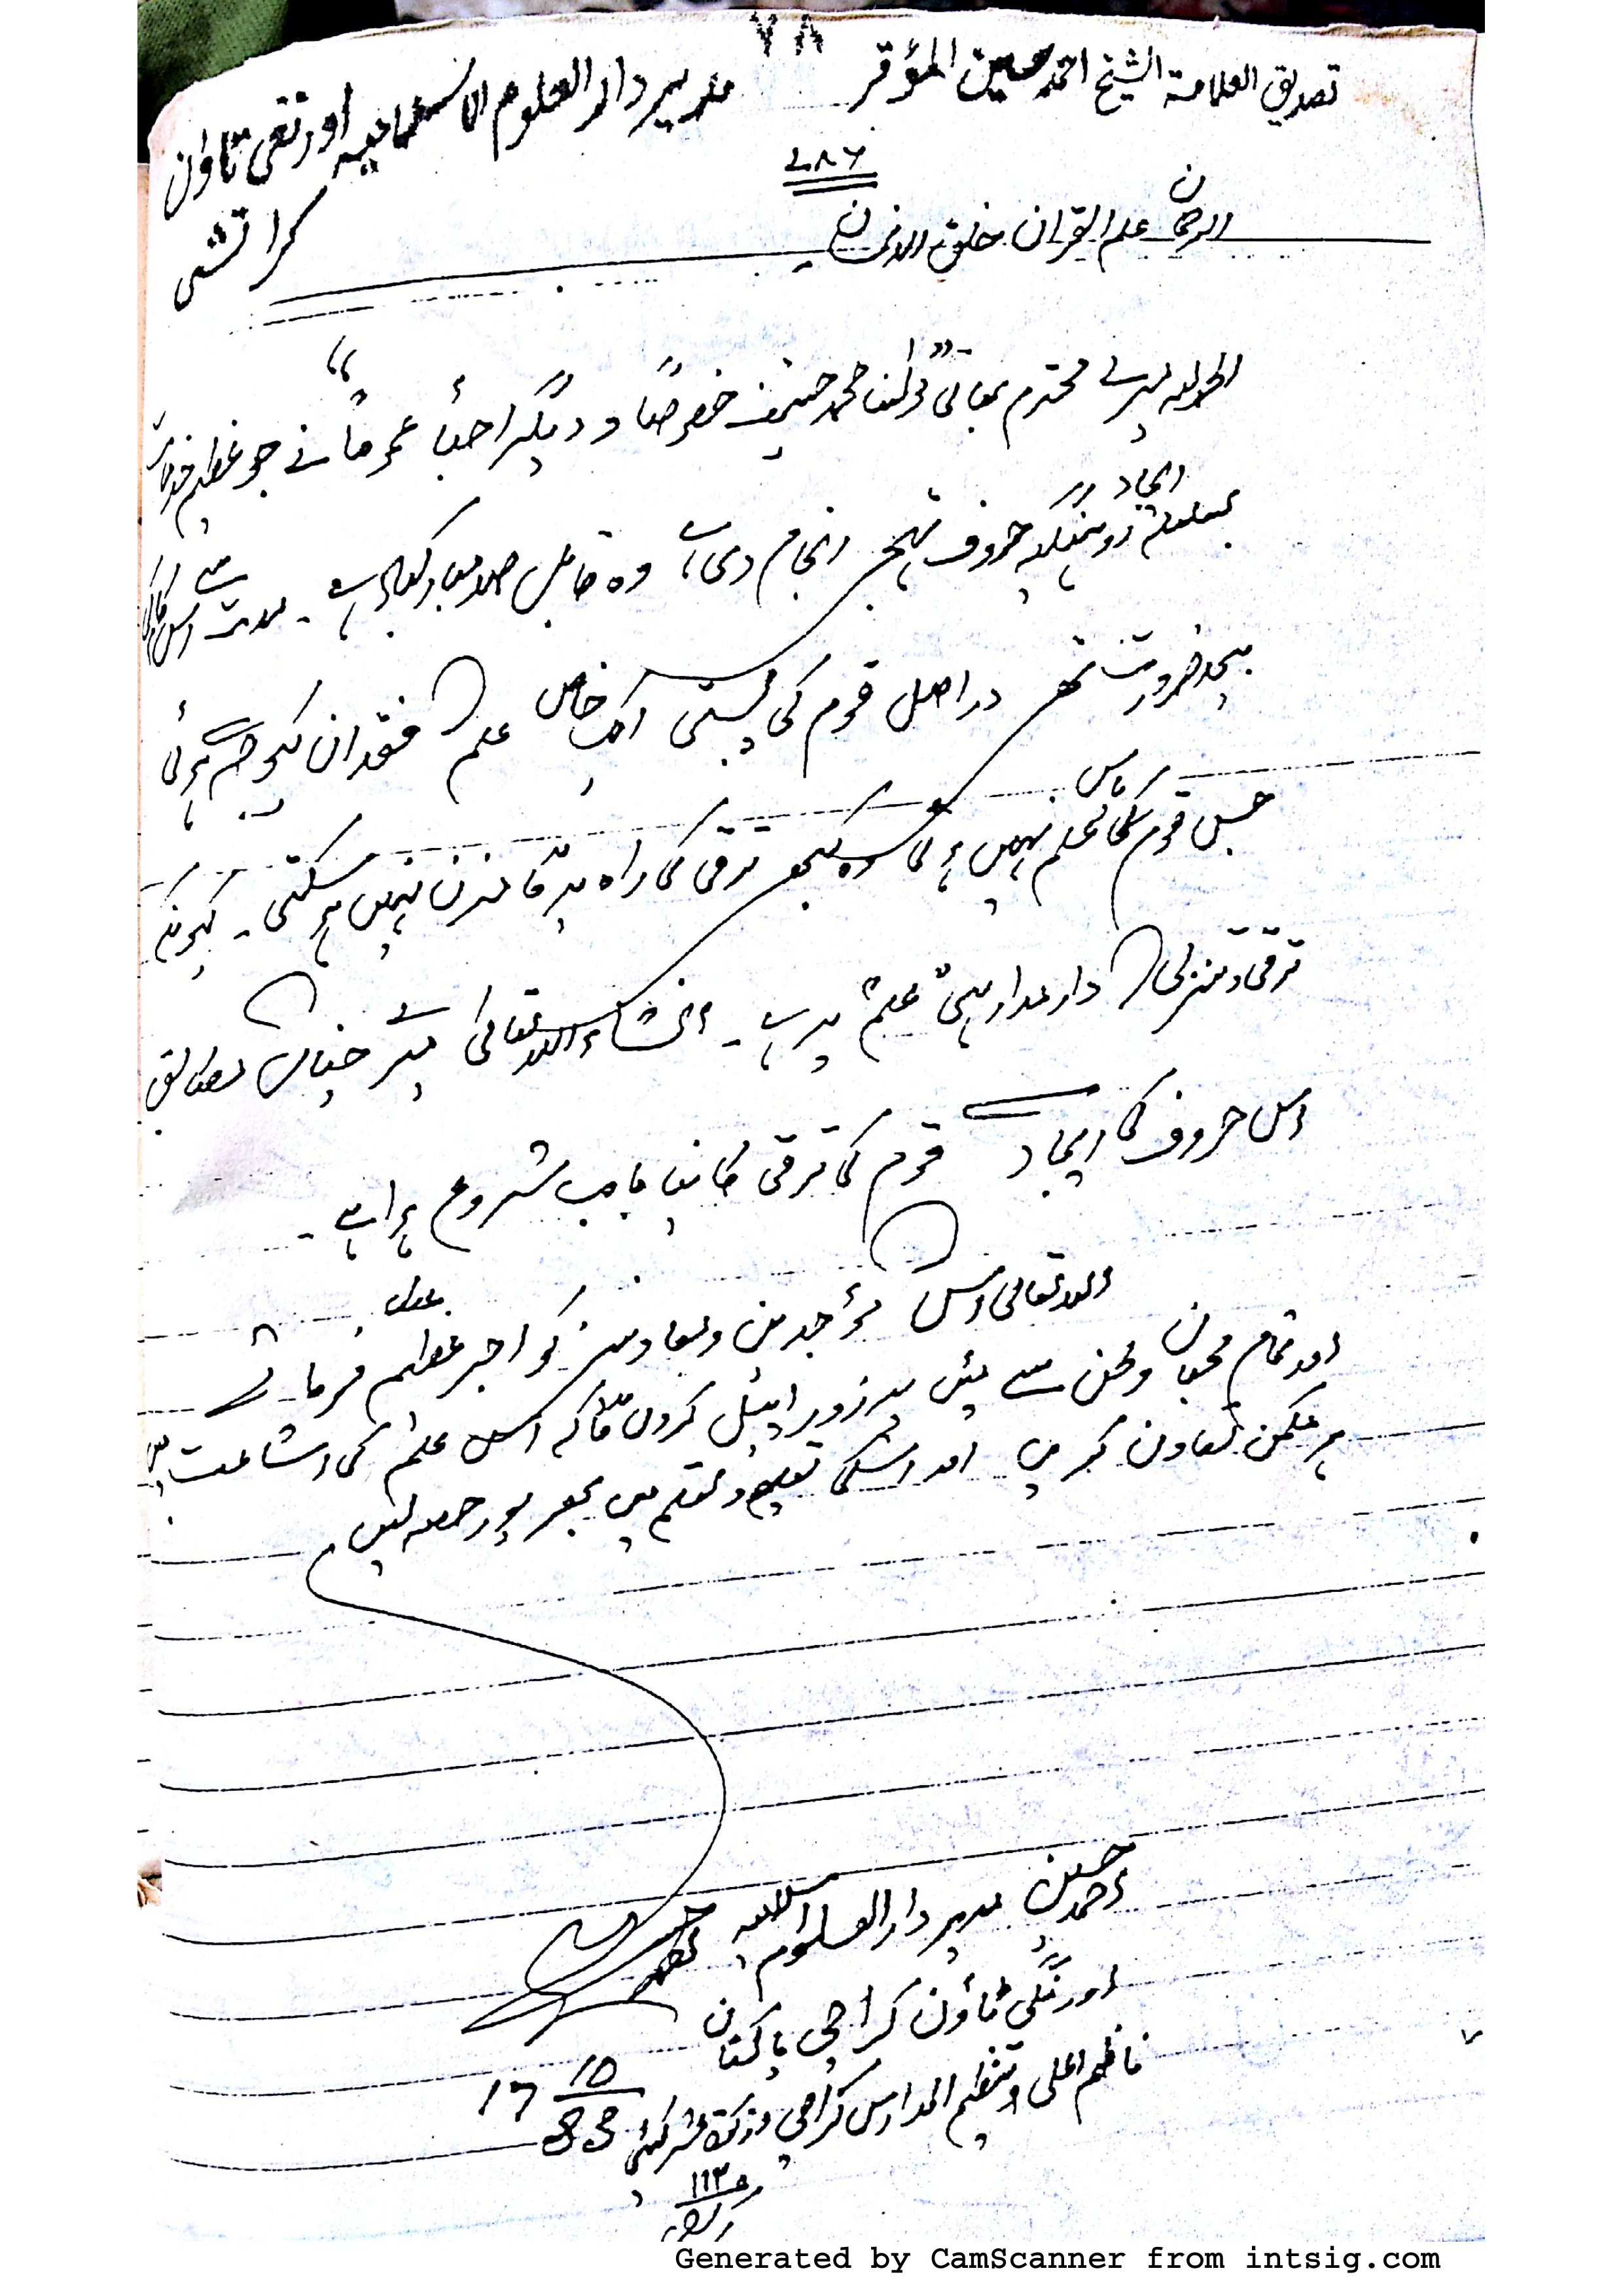 ٧٨
تصديق العلامة الشيخ احمد حسين المؤقر مدير دار العلوم الاسلامية اورنقى تاؤن
كراتشى
٧٨٦
الرحمان علم القران خلق الانسان۔
الحمد للہ میرے محترم بھائی "مولٰنا محمد حنیف خصوصًا و دیگر احبا عمومًا" نے جو عظیم خدمات
بسلسلہ ایجاد روہنگیہ حروف تہجی انجام دی ہے وہ قابل صد مبارکباد ہے۔ مدت سے اس کی
بیحد ضرورت تھی دراصل قوم کی پستی اک خاص علم کا فقدان کیوجہ سے ہوئی
جس قوم کے پاس علم نہیں ہوگا وہ کبھی ترقی کی راہ پر گامزن نہیں ہو سکتی۔ کیونکہ
ترقی و تنزلی کا دارمدار ہی "علم" پر ہے۔ انشاء اللہ تعالی میرے خیال کے مطابق
اس حروف کی ایجاد سے قوم کی ترقی کا نیا باب شروع ہوا ہے۔
اللہ تعالی اس کے مؤجدین و معاونین کو اجر عظیم عطا فرمائے
اور تمام محبان وطن سے میں پر زور اپیل کروں گا کہ اس علم کی اشاعت میں
ہر ممکن تعاون کریں اور اسکی تعلیم و تعلم میں بھر پور حصہ لیں
احمد حسین مدیر دار العلوم اسلامیہ
اورنگی ٹاؤن کراچی پاکستان
ناظم اعلی تنظیم المدارس کراچی و زکوۃ عشر کمیٹی
17 10
83
Generated by CamScanner from intsig.com